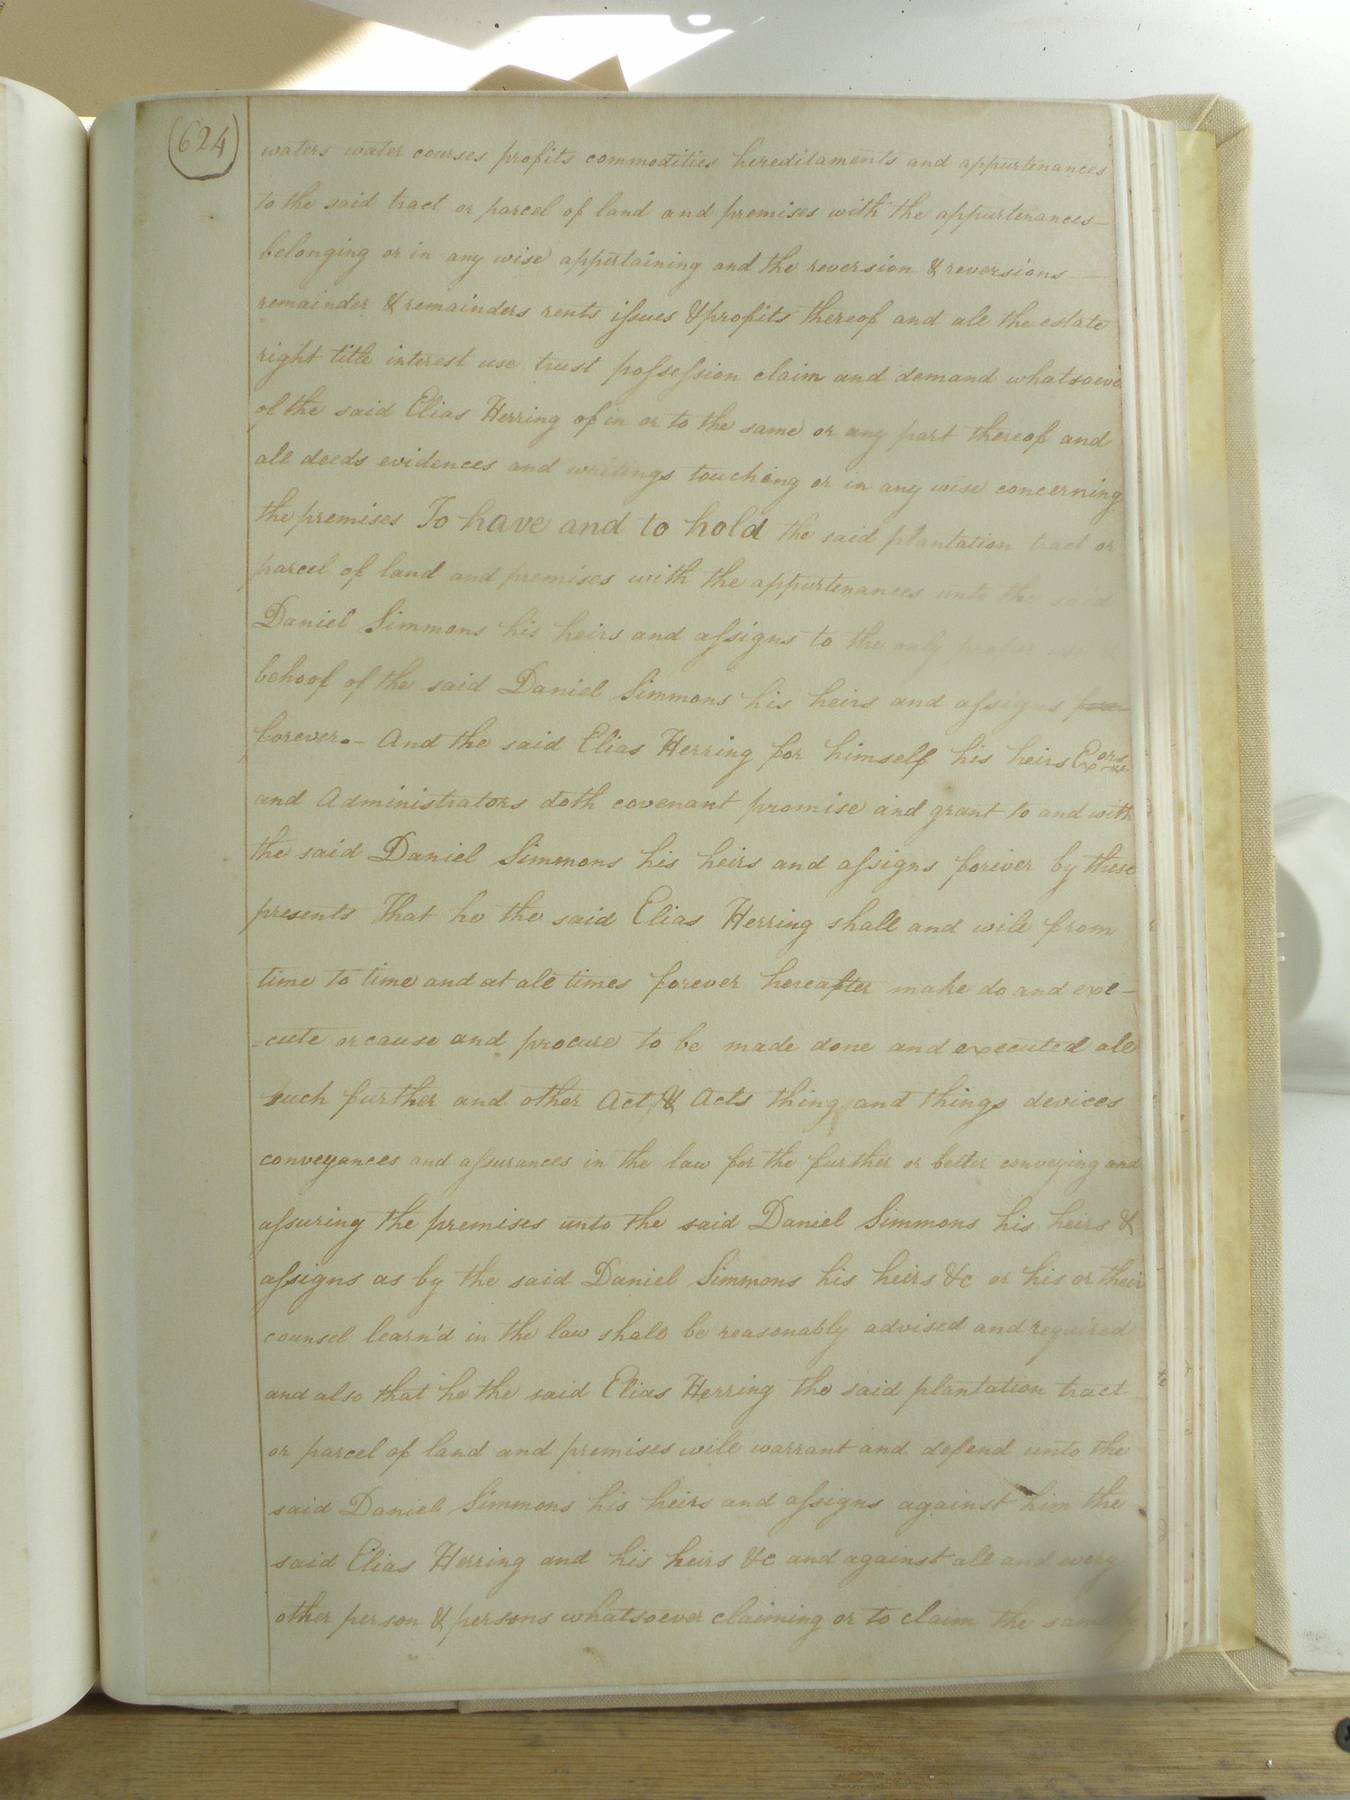 (624)
waters water courses profits commodities hereditaments and appurtenances
to the said tract or parcel of land and premises with the appurtenances—
belonging or in any wise appertaining and the reversion & reversions—
remainder & remainders rents issues & profits thereof and all the estate
right title interest use trust possession claim and demand whatsoever
of the said Elias Herring of in or to the same or any part thereof and
all deeds evidences and writings touching or in any wise concerning
the premises To have and to hold the said plantation tract or
parcel of land and premises with the appurtenances unto the said
Daniel Simmons his heirs and assigns to the only proper use
behoof of the said Daniel Simmons his heirs and assigns
forever.— And the said Elias Herring for himself his heirs Exors
and Administrators doth covenant promise and grant to and with
the said Daniel Simmons his heirs and assigns forever by these
presents That he the said Elias Herring shall and will from
time to time and at all times forever hereafter make do and exe-
=cute or cause and procure to be made done and executed all
such further and other Act & Acts thing and things devices
conveyances and assurances in the law for the further or better conveying and
assuring the premises unto the said Daniel Simmons his heirs &
assigns as by the said Daniel Simmons his heirs &c or his or their
counsel learn'd in the law shall be reasonably advised and required
and also that he the said Elias Herring the said plantation tract
or parcel of land and premises will warrant and defend unto the
said Daniel Simmons his heirs and assigns against him the
said Elias Herring and his heirs &c and against all and every
other person & persons whatsoever claiming or to claim the same